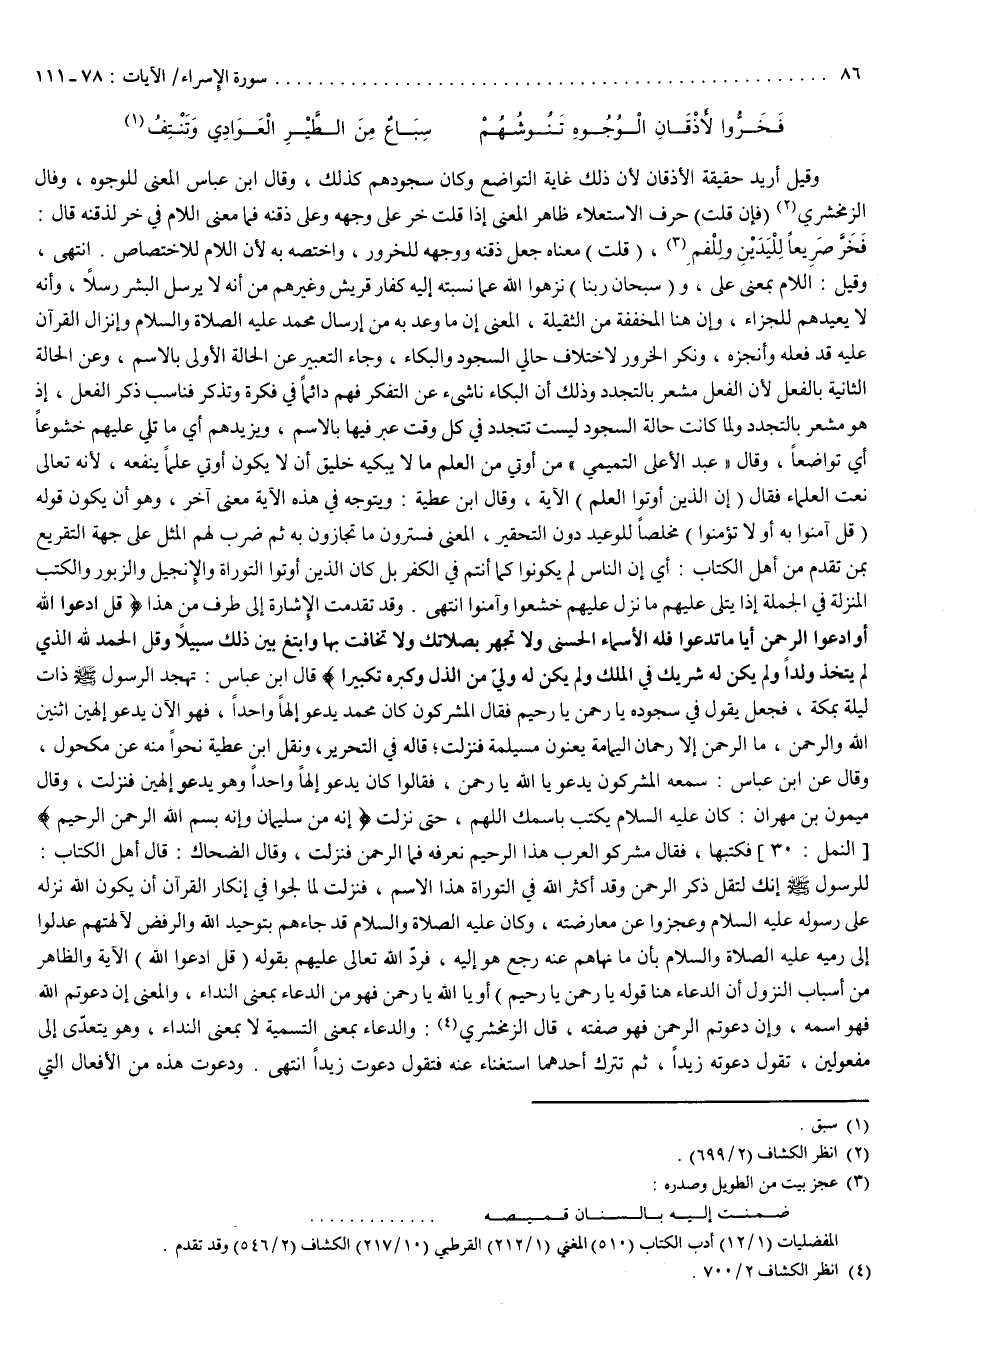 ٨٦ . . . . . . . . . . . . . . . . . . . . . . . . . . . . . . . . . . . . . . . . . . . . . . . . . . . . سورة الإسراء/ الآيات : ٧٨ ـ ١١١
فَخَرُّوا لأَذْقَانِ الْوُجُوهِ تَنُوشُهُمْ سِبَاعٌ مِنَ الطَّيْرِ الْعَوَادِي وَتَنْتِفُ(١)
وقيل أريد حقيقة الأذقان لأن ذلك غاية التواضع وكان سجودهم كذلك ، وقال ابن عباس المعنى للوجوه ، وقال
الزمخشري(٢) (فإن قلت) حرف الاستعلاء ظاهر المعنى إذا قلت خر على وجهه وعلى ذقنه فما معنى اللام في خر لذقنه قال :
فَخَرَّ صَرِيعاً لِلْيَدَيْنِ ولِلْفمِ(٣) ، ( قلت ) معناه جعل ذقنه ووجهه للخرور ، واختصه به لأن اللام للاختصاص . انتهى ،
وقيل : اللام بمعنى على ، و ( سبحان ربنا ) نزهوا الله عما نسبته إليه كفار قريش وغيرهم من أنه لا يرسل البشر رسلاً ، وأنه
لا يعيدهم للجزاء ، وإن هنا المخففة من الثقيلة ، المعنى إن ما وعد به من إرسال محمد عليه الصلاة والسلام وإنزال القرآن
عليه قد فعله وأنجزه ، ونكر الخرور لاختلاف حالي السجود والبكاء ، وجاء التعبير عن الحالة الأولى بالاسم ، وعن الحالة
الثانية بالفعل لأن الفعل مشعر بالتجدد وذلك أن البكاء ناشىء عن التفكر فهم دائماً في فكرة وتذكر فناسب ذكر الفعل ، إذ
هو مشعر بالتجدد ولما كانت حالة السجود ليست تتجدد في كل وقت عبر فيها بالاسم ، ويزيدهم أي ما تلي عليهم خشوعاً
أي تواضعاً ، وقال « عبد الأعلى التميمي » من أوتي من العلم ما لا يبكيه خليق أن لا يكون أوتي علماً ينفعه ، لأنه تعالى
نعت العلماء فقال ( إن الذين أوتوا العلم ) الآية ، وقال ابن عطية : ويتوجه في هذه الآية معنى آخر ، وهو أن يكون قوله
( قل آمنوا به أو لا تؤمنوا ) مخلصاً للوعيد دون التحقير ، المعنى فسترون ما تجازون به ثم ضرب لهم المثل على جهة التقريع
بمن تقدم من أهل الكتاب : أي إن الناس لم يكونوا كما أنتم في الكفر بل كان الذين أوتوا التوراة والإنجيل والزبور والكتب
المنزلة في الجملة إذا يتلى عليهم ما نزل عليهم خشعوا وآمنوا انتهى . وقد تقدمت الإشارة إلى طرف من هذا ﴿ قل ادعوا الله
أو ادعوا الرحمن أيا ما تدعوا فله الأسماء الحسنى ولا تجهر بصلاتك ولا تخافت بها وابتغ بين ذلك سبيلاً وقل الحمد لله الذي
لم يتخذ ولداً ولم يكن له شريك في الملك ولم يكن له وليّ من الذل وكبره تكبيرا ﴾ قال ابن عباس : تهجد الرسول ﷺ ذات
ليلة بمكة ، فجعل يقول في سجوده يا رحمن يا رحيم فقال المشركون كان محمد يدعو إلهاً واحداً ، فهو الآن يدعو إلهين اثنين
الله والرحمن ، ما الرحمن إلا رحمان اليمامة يعنون مسيلمة فنزلت؛ قاله في التحرير، ونقل ابن عطية نحواً منه عن مكحول ،
وقال عن ابن عباس : سمعه المشركون يدعو يا الله يا رحمن ، فقالوا كان يدعو إلهاً واحداً وهو يدعو إلهين فنزلت ، وقال
ميمون بن مهران : كان عليه السلام يكتب باسمك اللهم ، حتى نزلت ﴿ إنه من سليمان وإنه بسم الله الرحمن الرحيم ﴾
[ النمل : ٣٠ ] فكتبها ، فقال مشركو العرب هذا الرحيم نعرفه فما الرحمن فنزلت ، وقال الضحاك : قال أهل الكتاب :
للرسول ﷺ إنك لتقل ذكر الرحمن وقد أكثر الله في التوراة هذا الاسم ، فنزلت لما لجوا في إنكار القرآن أن يكون الله نزله
على رسوله عليه السلام وعجزوا عن معارضته ، وكان عليه الصلاة والسلام قد جاءهم بتوحيد الله والرفض لآلهتهم عدلوا
إلى رميه عليه الصلاة والسلام بأن ما نهاهم عنه رجع هو إليه ، فردّ الله تعالى عليهم بقوله ( قل ادعوا الله ) الآية والظاهر
من أسباب النزول أن الدعاء هنا قوله يا رحمن يا رحيم ) أو يا الله يا رحمن فهو من الدعاء بمعنى النداء ، والمعنى إن دعوتم الله
فهو اسمه ، وإن دعوتم الرحمن فهو صفته ، قال الزمخشري(٤) : والدعاء بمعنى التسمية لا بمعنى النداء ، وهو يتعدّى إلى
مفعولين ، تقول دعوته زيداً ، ثم تترك أحدهما استغناء عنه فتقول دعوت زيداً انتهى . ودعوت هذه من الأفعال التي
(١) سبق .
(٢) انظر الكشاف (٢/ ٦٩٩) .
(٣) عجز بيت من الطويل وصدره :
ضممت إليه بالسنان قميصه . . . . . . . . . . . . .
المفضليات (١/ ١٢) أدب الكتاب (٥١٠) المغني (١/ ٢١٢) القرطبي (١٠/ ٢١٧) الكشاف (٢/ ٥٤٦) وقد تقدم .
(٤) انظر الكشاف ٢/ ٧٠٠ .